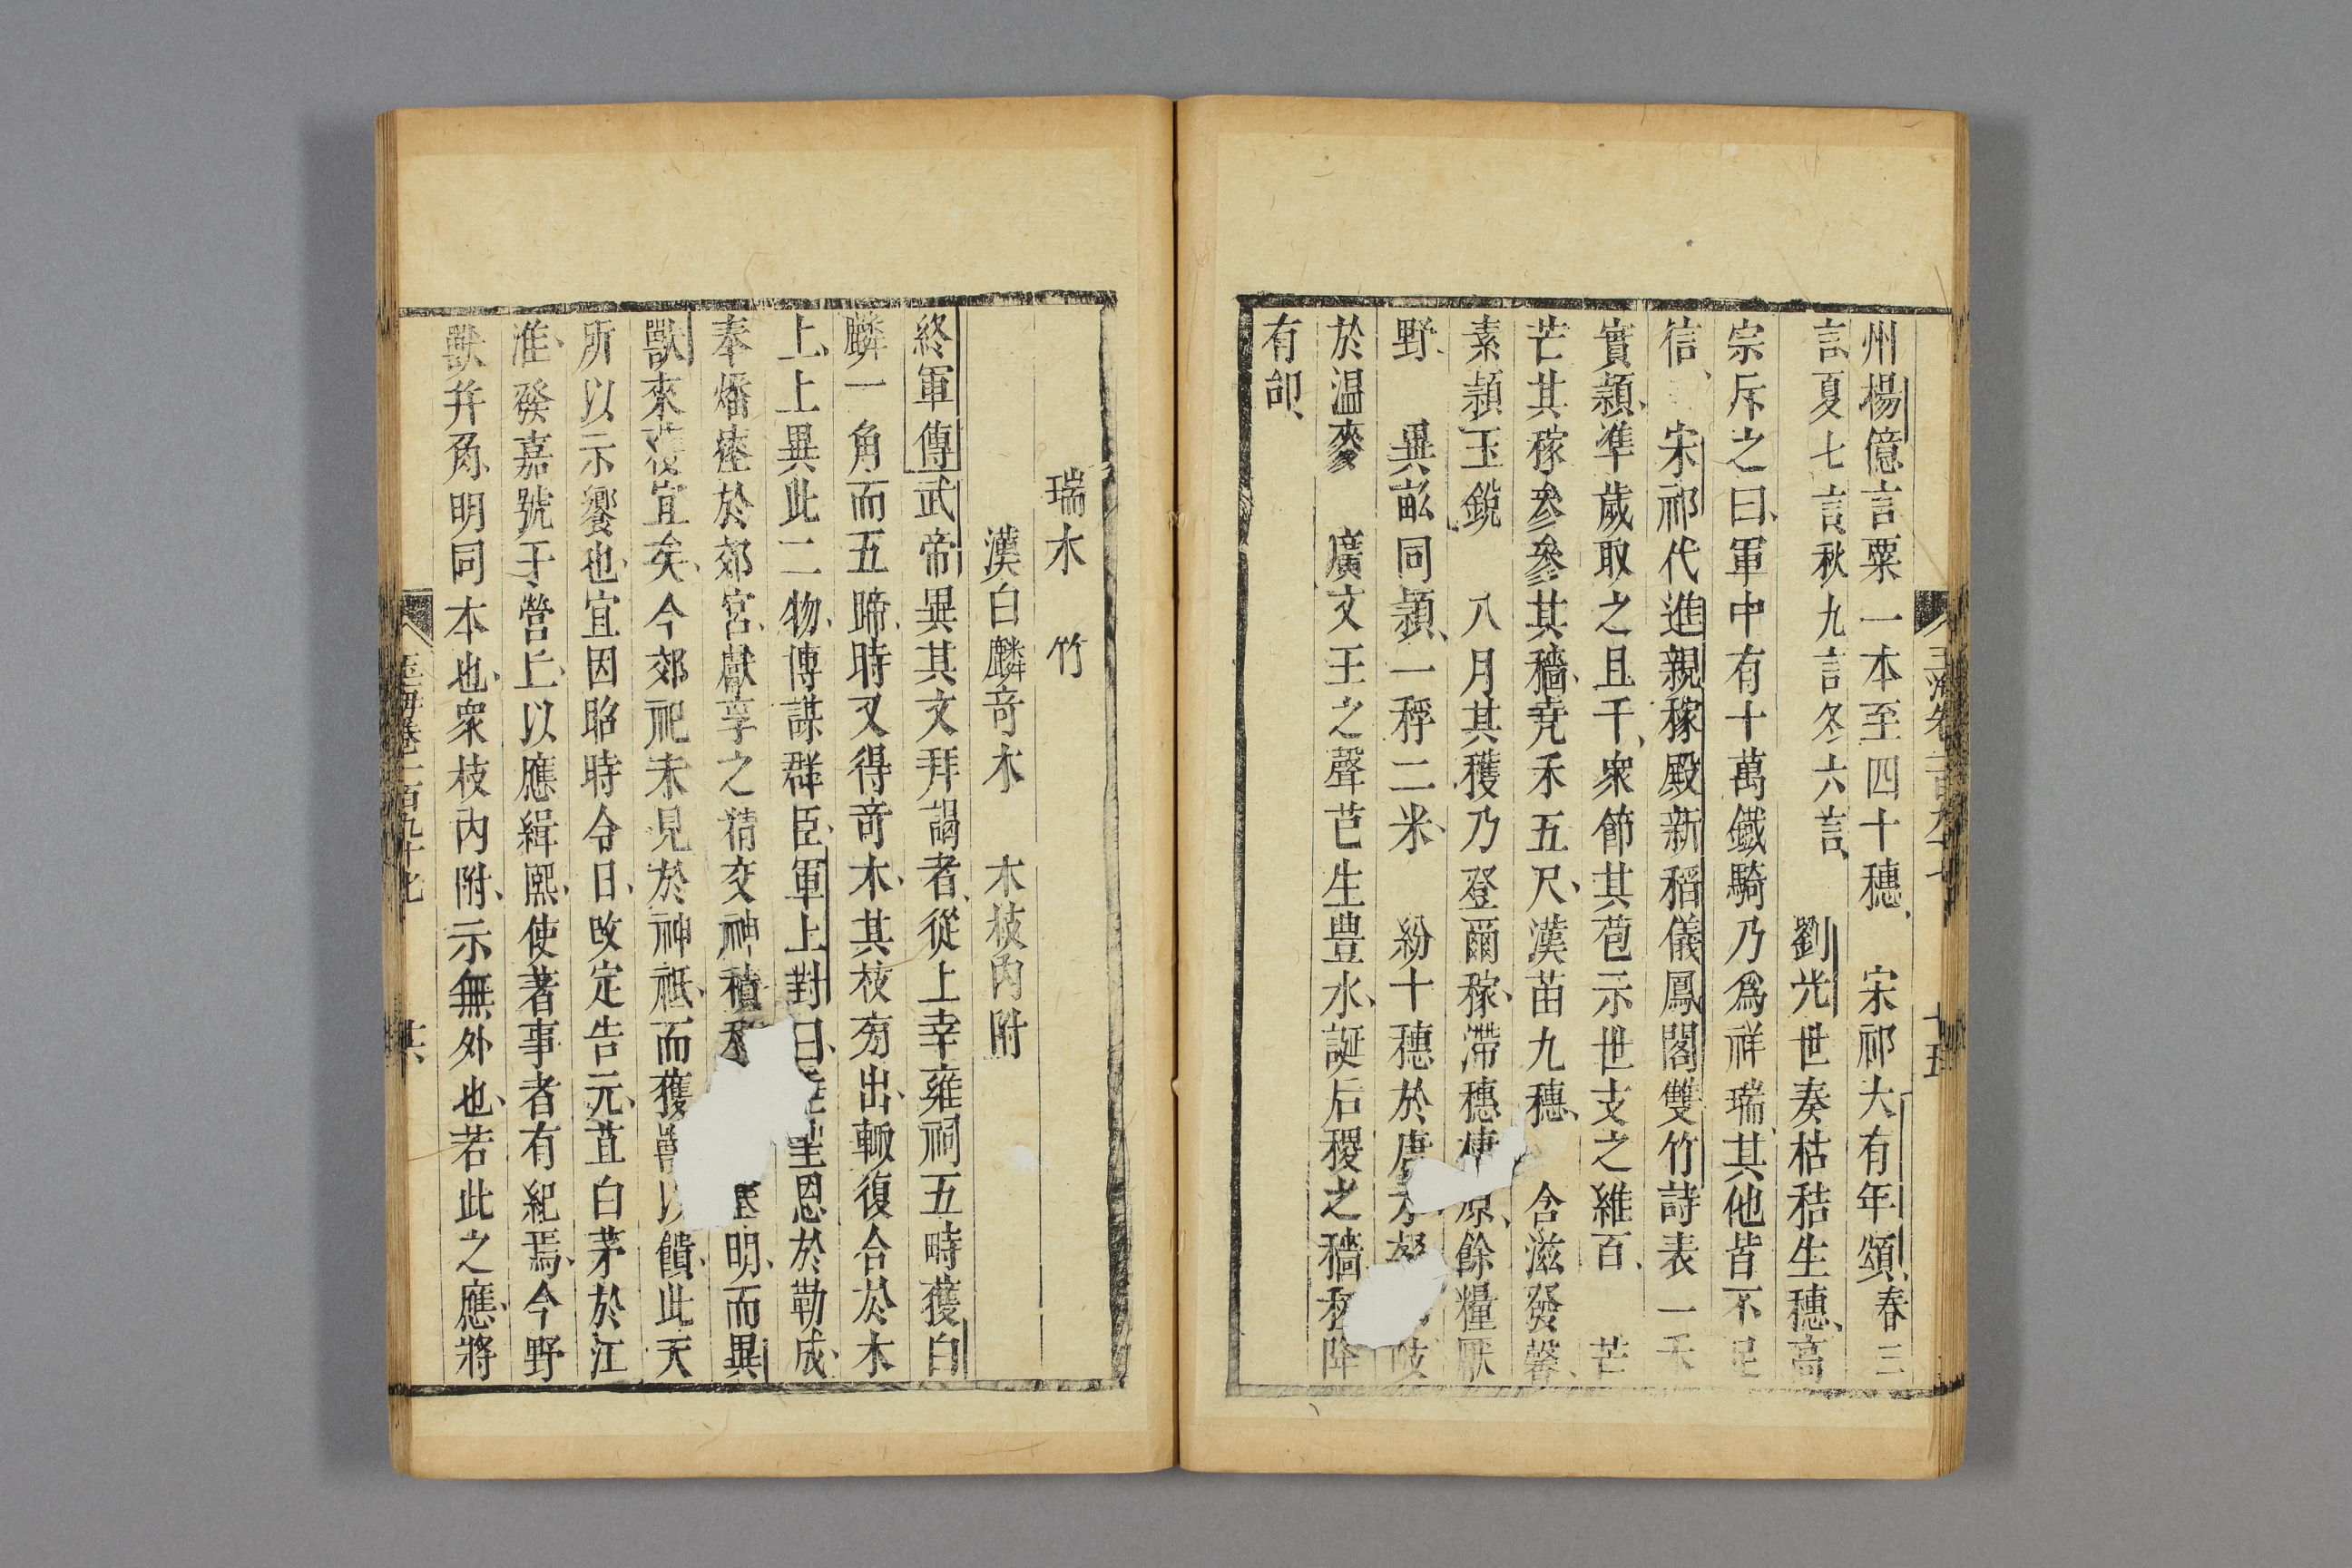 州楊億言粟一本至四十穗宋祁大有年頌春三
言夏七言秋九言冬六言劉光世奏枯秸生穗高
宗斥之曰軍中有十萬鐵騎乃爲祥瑞其他皆不足
信宋祁代進親稼殿新稻儀鳳閣雙竹詩表一禾
實頴準歲取之且千衆節其苞示世支之維百芒
芒其稼參參其穡堯禾五尺漢苗九穗含滋發馨
素頴玉銳八月其穫乃登爾稼滯穗棲原餘糧厭
野異畝同頴一稃二米紛十穗於唐
於温麥廣文王之聲芑生豊水誕后稷之穡降
有邰
玉海卷二百九十七
十五
瑞木竹
漢白麟竒木木枝内附
終軍傳武帝異其文拜謁者從上幸雍祠五畤獲白
麟一角而五蹄時又得竒木其枝旁出輙復合於木
上上異此二物傳謀群臣軍上對曰聖恩於勒成
奉燔瘞於郊宮獻享之精交神積明而異
獸來獲宜矣今郊祀未見於神祗而獲獸以饋此天
所以示饗也宜因昭時令日改定告元苴白茅於江
淮發嘉號于營丘以應緝熙使著事者有紀焉今野
獸并角明同本也衆枝内附示無外也若此之應將
玉海卷二百九十七
共